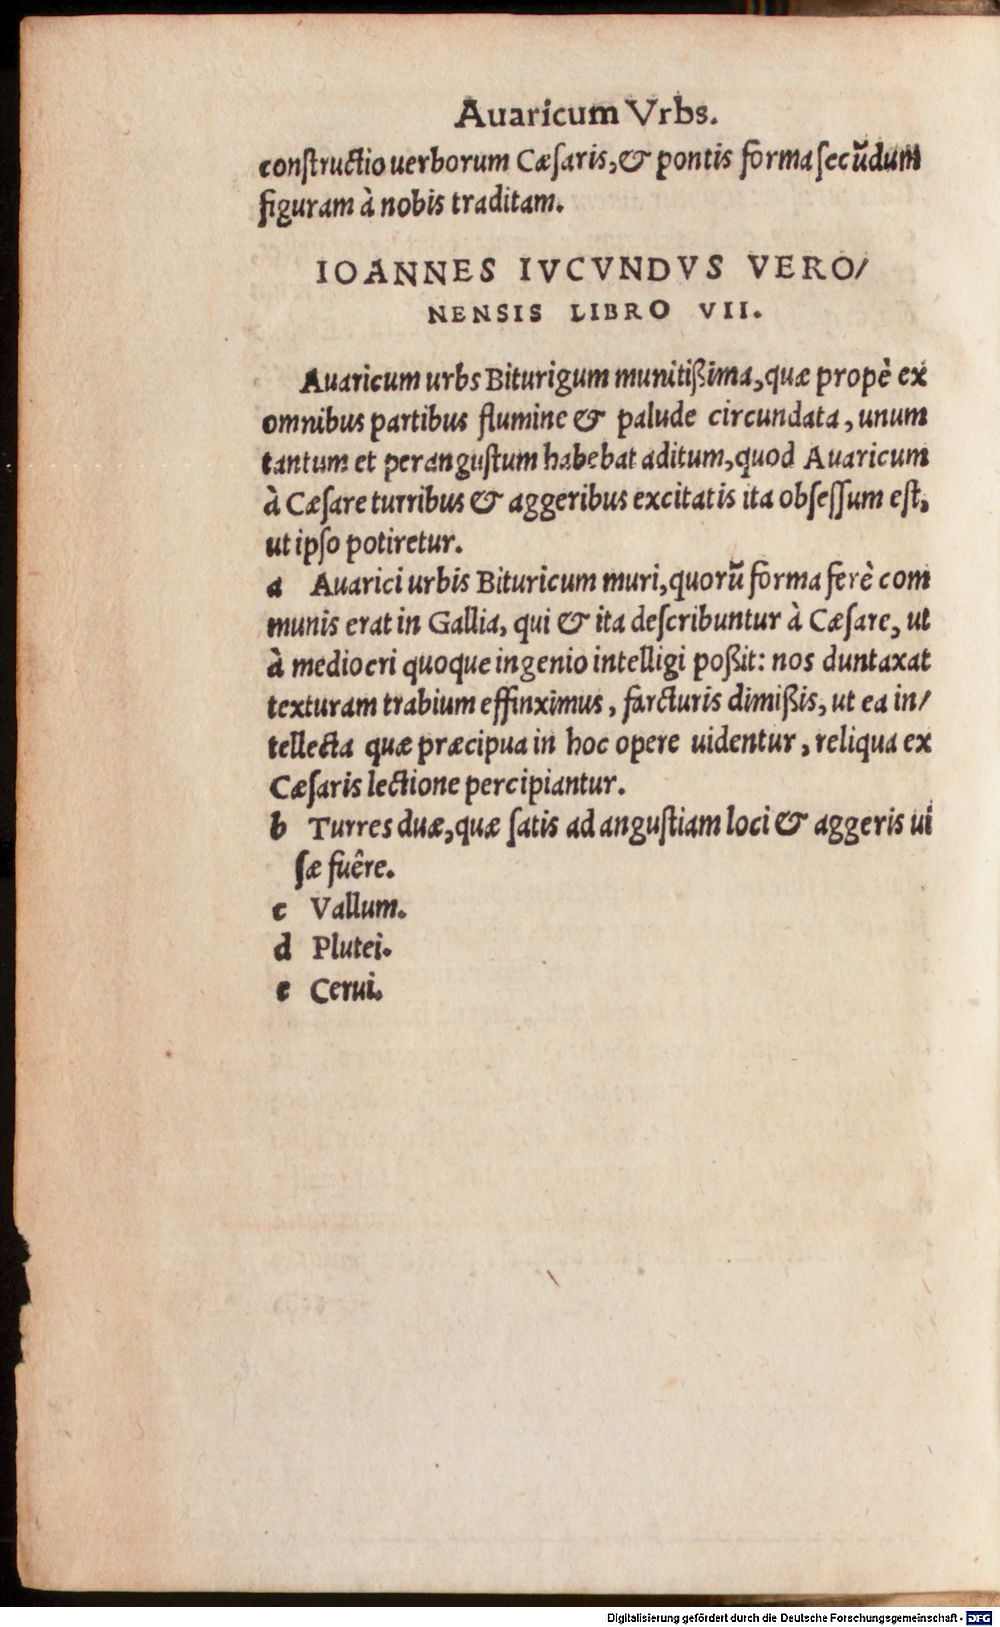 Avaricum Vrbs.
constructio uerborum Cæſaris, & pontis forma ſecũdum
figuram à nobis traditam.
IOANNES IVCVNDVS VERO/
NENSIS LIBRO VII.
Avaricum urbs Biturigum munitißima, quæ propè ex
omnibus partibus flumine & palude circundata, unum
tantum et peranguſtum habebat aditum, quod Avaricum
à Cæſare turribus & aggeribus excitatis ita obſeſſum eſt,
ut ipſo potiretur.
a Avarici urbis Bituricum muri, quorũ forma ferè com
munis erat in Gallia, qui & ita deſcribuntur à Cæſare, ut
à mediocri quoque ingenio intelligi poßit: nos duntaxat
texturam trabium effinximus, farcturis dimißis, ut ea in/
tellecta quæ præcipua in hoc opere uidentur, reliqua ex
Cæſaris lectione percipiantur.
b Turres duæ, quæ ſatis ad anguſtiam loci & aggeris ui
ſæ fuêre.
c Vallum.
d Plutei.
e Cerui.
Digitalisierung gefördert durch die Deutsche Forschungsgemeinschaft - DFG